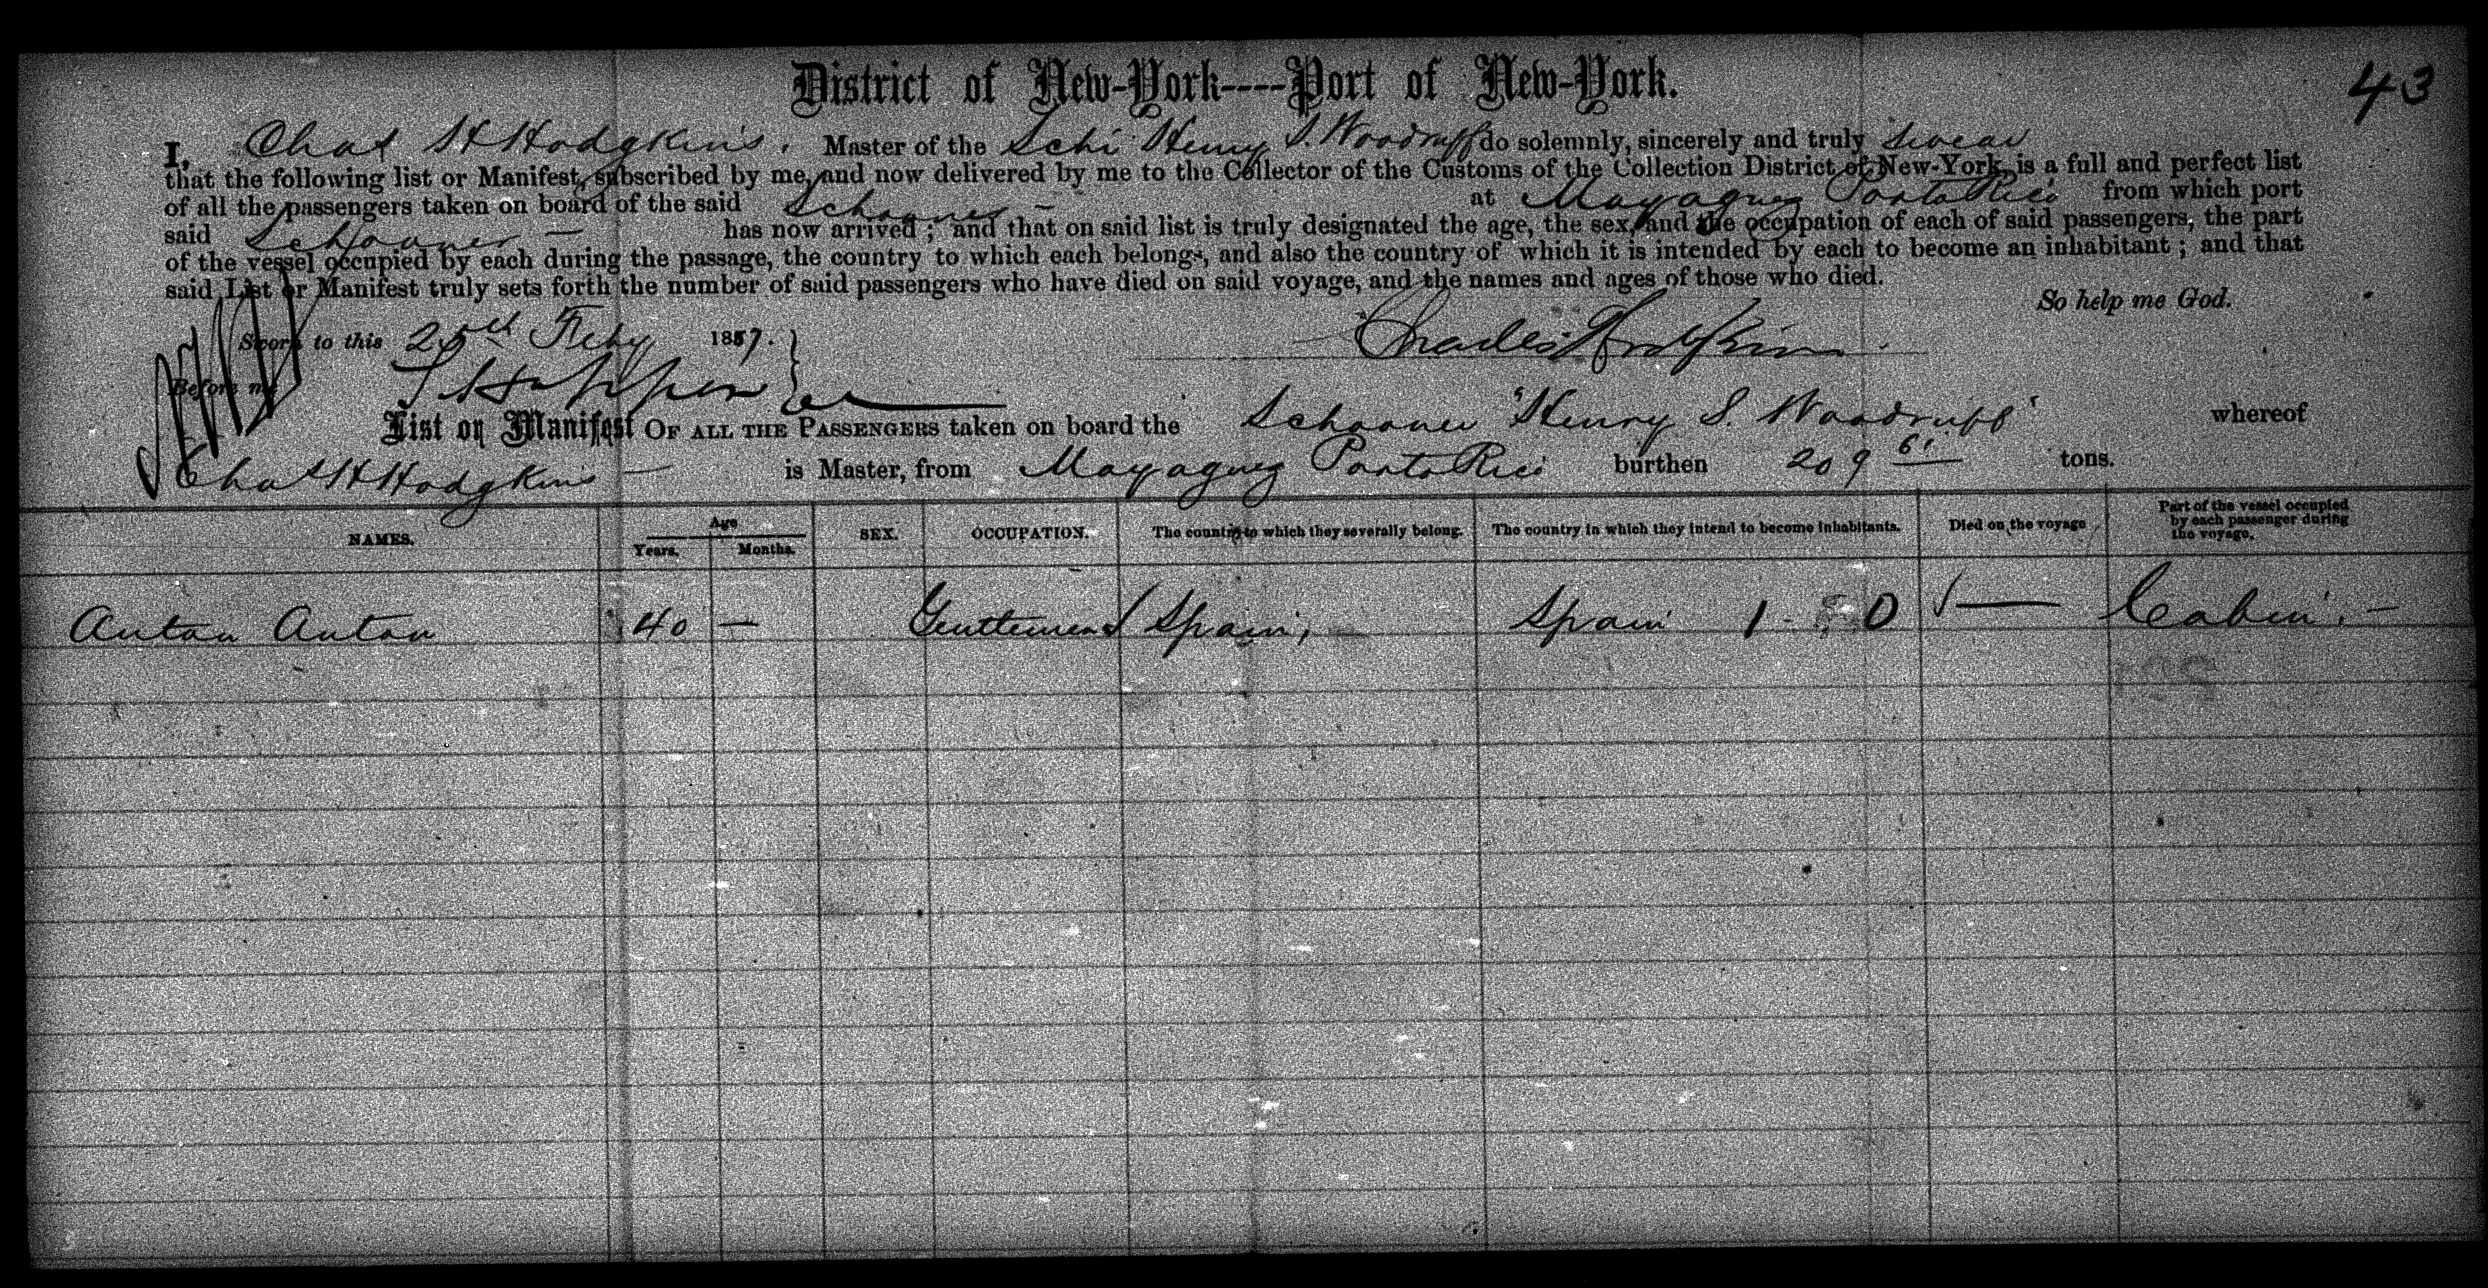 43
District of New-York----Port of New-York.
I, Chas H Hodgkins. Master of the Schr Henry S. Woodruff do solemnly, sincerely and truly swear
that the following list or Manifest, subscribed by me, and now delivered by me to the Collector of the Customs of the Collection District of New-York, is a full and perfect list
of all the passengers taken on board of the said Schooner — at Mayaguez Porto Rico from which port
said Schooner — has now arrived; and that on said list is truly designated the age, the sex, and the occupation of each of said passengers, the part
of the vessel occupied by each during the passage, the country to which each belongs, and also the country of which it is intended by each to become an inhabitant; and that
said List or Manifest truly sets forth the number of said passengers who have died on said voyage, and the names and ages of those who died.
So help me God.
Sworn to this 25th Feby 1857. Charles Hodgkins
Before me
List or Manifest OF ALL THE PASSENGERS taken on board the Schooner "Henry S. Woodruff" whereof
Chas H Hodgkins — is Master, from Mayaguez Porto Rico burthen 209 61 tons.
NAMES. Age Years. Months. SEX. OCCUPATION. The country to which they severally belong. The country in which they intend to become inhabitants. Died on the voyage Part of the vessel occupied by each passenger during the voyage.
Anton Anton 40 — Gentlemen Spain, Spain 1 - 0 — Cabin. —